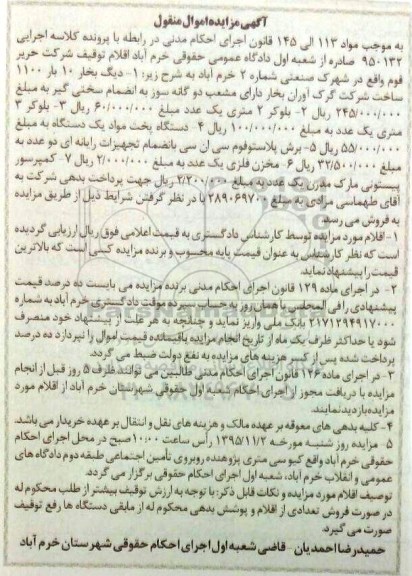 آگهی مزایده اموال منقول
به موجب مواد ۱۱۳ الی ۱۴۵ قانون اجرای احکام مدنی در رابطه با پرونده کلاسه اجرایی
۹۵۰۱۳۲ صادره از شعبه اول دادگاه عمومی حقوقی خرم آباد اقلام توقیف شرکت حریر
فوم واقع در شهرک صنعتی شماره ۲ خرم آباد به شرح زیر: ۱- دیگ بخار ۱۰ بار ۱۱۰۰
ساخت شرکت گرک آوران بخار دارای مشعب دو گانه سوز به انضمام سختی گیر به مبلغ
۲۴۵/۰۰۰/۰۰۰ ریال ۲- بلوکر ۲ متری یک عدد مبلغ ۶۰/۰۰۰/۰۰۰ ریال ۳- بلوکر ۳
متری یک عدد به مبلغ ۱۰۰/۰۰۰/۰۰۰ ریال ۴- دستگاه پخت مواد یک دستگاه به مبلغ
۵۵/۰۰۰/۰۰۰ ریال ۵- برش پلاستوفوم سی ان سی بانضمام تجهیزات رایانه ای دو عدد به
مبلغ ۳۲/۵۰۰/۰۰۰ ریال ۶- مخزن فلزی یک عدد به مبلغ ۲/۰۰۰/۰۰۰ ریال ۷- کمپرسور
پیستونی مارک مدرن یک عدد به مبلغ ۲/۲۰۰/۰۰۰ ریال جهت پرداخت بدهی شرکت به
آقای طهماسبی مرادی به مبلغ ۲۸۹۰۶۹۷۰۰ با در نظر گرفتن شرایط ذیل از طریق مزایده
به فروش می رسد.
۱- اقلام مورد مزایده توسط کارشناس دادگستری به قیمت اعلامی فوق ریال ارزیابی گردیده
است که نظر کارشناس به عنوان قیمت پایه محسوب و برنده مزایده کسی است که بالاترین
قیمت را پیشنهاد نماید.
۲- در اجرای ماده ۱۲۹ قانون اجرای احکام مدنی برنده مزایده می بایست ده درصد قیمت
پیشنهادی را فی المجلس یا همان روز به حساب سپرده موقت دادگستری خرم آباد به شماره
۲۱۷۱۲۹۴۹۱۷۰۰۰ بانک ملی واریز نماید و چنانچه به هر علت از پیشنهاد خود منصرف
شود یا حداکثر ظرف یک ماه از تاریخ انجام مزایده باقیمانده قیمت اموال را نپردازد ده درصد
پرداخت شده پس از کسر هزینه های مزایده به نفع دولت ضبط می گردد.
۳- در اجرای ماده ۱۲۶ قانون اجرای احکام مدنی طالبین می توانند ظرف ۵ روز قبل از انجام
مزایده با دریافت مجوز از اجرای احکام شعبه اول حقوقی شهرستان خرم آباد از اقلام مورد
مزایده بازدید نمایند.
۴- کلیه بدهی های معوقه بر عهده مالک و هزینه های نقل و انتقال بر عهده خریدار می باشد.
۵- مزایده روز شنبه مورخه ۱۳۹۵/۱۱/۲ راس ساعت ۱۰:۰۰ صبح در محل اجرای احکام
حقوقی خرم آباد واقع کیو سی متری پژوهنده روبروی تأمین اجتماعی طبقه دوم دادگاه های
عمومی و انقلاب خرم آباد، شعبه اول اجرای احکام حقوقی برگزار می گردد.
توصیف اقلام مورد مزایده و نکات قابل ذکر: با توجه به ارزش توقیف بیشتر از طلب محکوم له
در صورت فروش تعدادی از اقلام و پوشش بدهی محکوم له از مابقی دستگاه ها رفع توقیف
صورت می گیرد.
حمیدرضا احمدیان - قاضی شعبه اول اجرای احکام حقوقی شهرستان خرم آباد